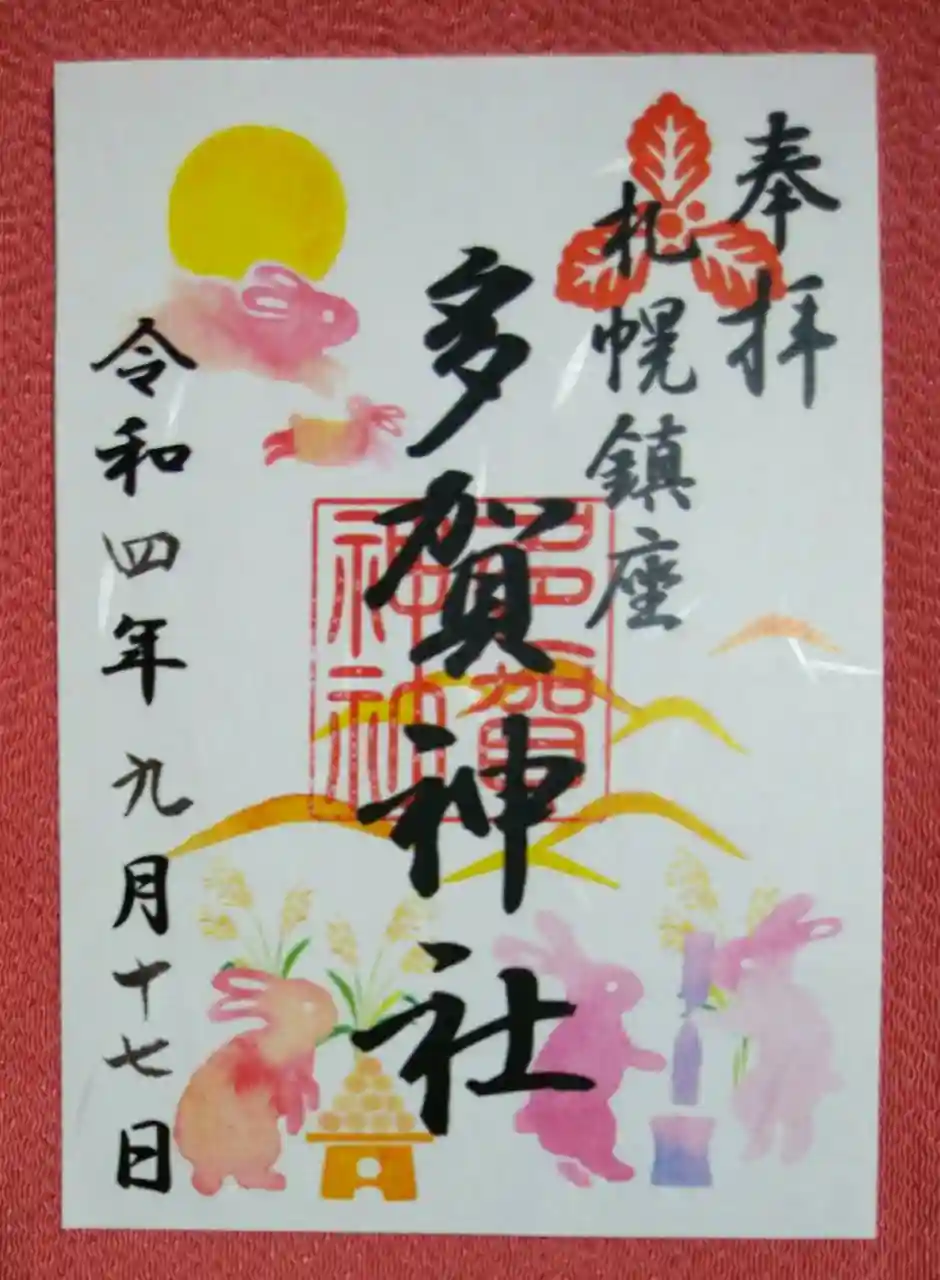 奉拝
札幌鎮座
多賀神社
多賀神社
令和四年九月十七日